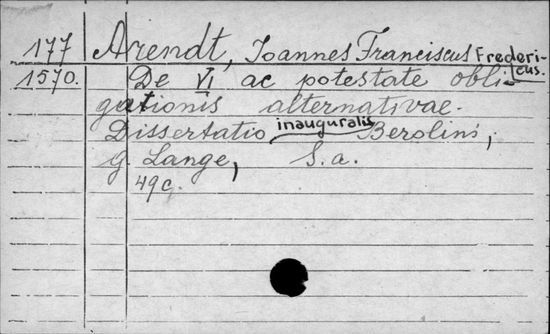 177 Arendt, Joannes Franciscus Frederi-
cus.
1570. De VI ac potestate obli-
gationis alternativae.
Dissertatio inauguralis Berolini,
G. Lange, S. a.
49c.